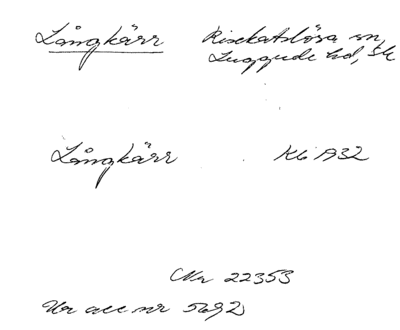 Långkärr Risekatslösa sn,
Luggude hd, Sk
Långkärr Kb 1932
Nr 22353
Ur acc nr 5692